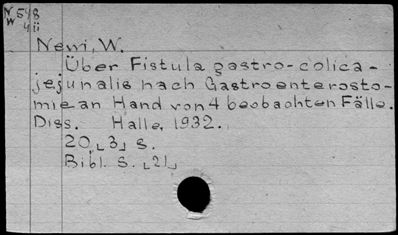 N 548
W 4ü
Newi, W.
Über Fistula gastro-colica-
jejunalis nach Gastroenterosto-
mie an Hand von 4 beobachten Fälle.
Diss. Halle, 1932.
20,⌞3⌟ s.
Bibl. S. ⌞21⌟